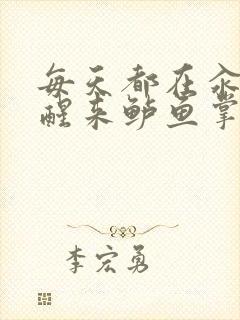 每天都在汆
醒来鲈鱼掌
李宏勇